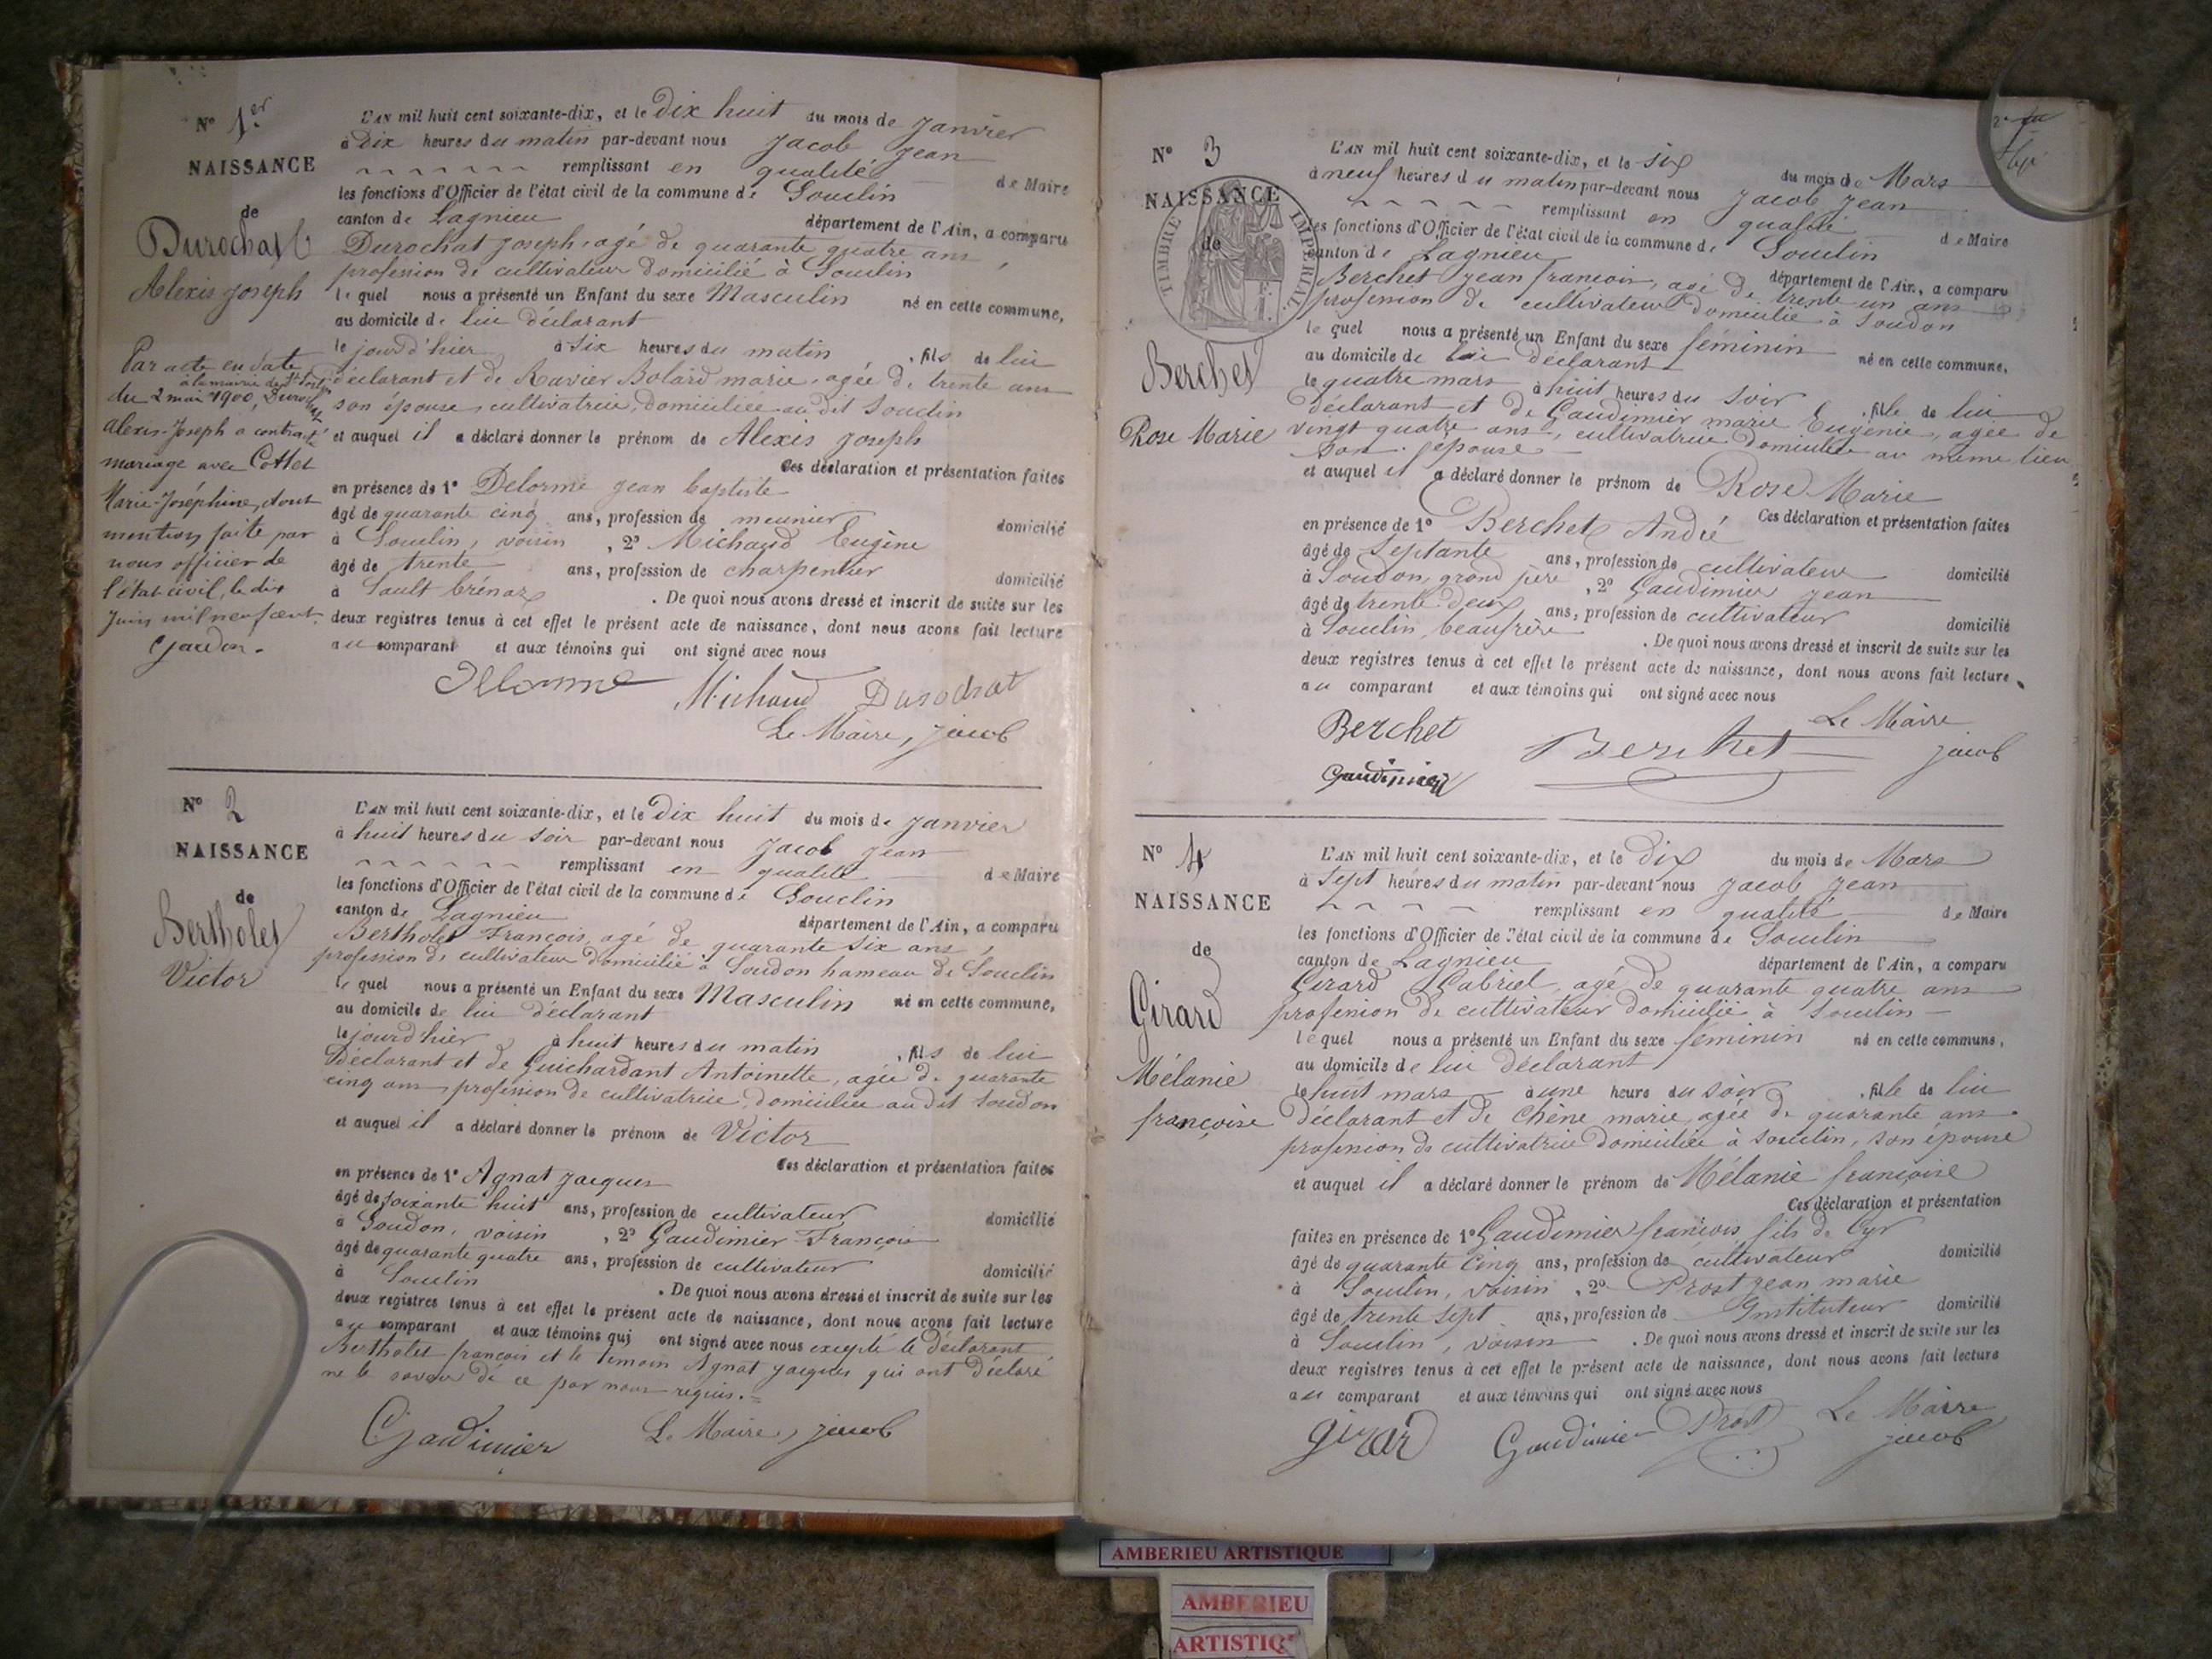 N° 1er
NAISSANCE
de
Durochat
Alexis Joseph
Par acte en date
à la mairie de St
du 2 mai 1900, Durochat
Alexis-Joseph a contracté
mariage avec Cottet
Marie-Joséphine, dont
mention faite par
nous officier de
l'état civil, le dix
Juin mil neuf cent.
L'AN mil huit cent soixante-dix, et le Dix huit du mois de Janvier
à Dix heures du matin par-devant nous Jacob Jean
remplissant en qualité de Maire
les fonctions d'Officier de l'état civil de la commune de Souclin
canton de Lagnieu département de l'Ain, a comparu
Durochat Joseph, agé de quarante quatre ans,
profession de cultivateur domicilié à Souclin
le quel nous a présenté un Enfant du sexe Masculin né en cette commune,
au domicile de lui déclarant
le jourd'hier à Six heures du matin, fils de lui
déclarant et de Ravier Bolard marie, agée de trente ans
son épouse, cultivatrice, domiciliée au dit Souclin
et auquel il a déclaré donner le prénom de Alexis Joseph
Ces déclaration et présentation faites
en présence de 1° Delorme Jean baptiste
âgé de quarante cinq ans, profession de meunier domicilié
à Souclin, voisin, 2° Michaud Eugène
âgé de trente ans, profession de charpentier domicilié
à Sault brénaz. De quoi nous avons dressé et inscrit de suite sur les
deux registres tenus à cet effet le présent acte de naissance, dont nous avons fait lecture
au comparant et aux témoins qui ont signé avec nous
Delorme Michaud Durochat
Le Maire, Jacob
N° 2
NAISSANCE
de
Bertholet
Victor
L'AN mil huit cent soixante-dix, et le Dix huit du mois de Janvier
à huit heures du soir par-devant nous Jacob Jean
remplissant en qualité de Maire
les fonctions d'Officier de l'état civil de la commune de Souclin
canton de Lagnieu département de l'Ain, a comparu
Bertholet François, agé de quarante six ans,
profession de cultivateur domicilié à Soudon hameau de Souclin
le quel nous a présenté un Enfant du sexe Masculin né en cette commune,
au domicile de lui déclarant
le jourd'hier à huit heures du matin, fils de lui
Déclarant et de Guichardant Antoinette, agée de quarante
cinq ans, profession de cultivatrice, domiciliée au dit Soudon
et auquel il a déclaré donner le prénom de Victor
Ces déclaration et présentation faites
en présence de 1° Agnat Jacques
âgé de soixante huit ans, profession de cultivateur domicilié
à Soudon, voisin, 2° Gaudimier François
âgé de quarante quatre ans, profession de cultivateur domicilié
à Souclin. De quoi nous avons dressé et inscrit de suite sur les
deux registres tenus à cet effet le présent acte de naissance, dont nous avons fait lecture
au comparant et aux témoins qui ont signé avec nous excepté le déclarant
Bertholet françois et le témoin Agnat Jacques qui ont déclaré
ne le savoir de ce par nous requis.
Gaudimier Le Maire, Jacob
N° 3
NAISSANCE
de
TIMBRE IMPÉRIAL
Berchet
Rose Marie
L'AN mil huit cent soixante-dix, et le six du mois de Mars
à neuf heures du matin par-devant nous Jacob Jean
remplissant en qualité de Maire
les fonctions d'Officier de l'état civil de la commune de Souclin
canton de Lagnieu département de l'Ain, a comparu
Berchet Jean françois, agé de trente un ans
profession de cultivateur domicilié à Soudon
le quel nous a présenté un Enfant du sexe féminin né en cette commune,
au domicile de lui déclarant
le quatre mars à huit heures du soir, fille de lui
déclarant et de Gaudimier marie Eugénie, agée de
vingt quatre ans, cultivatrice domiciliée au même lieu
son épouse
et auquel il a déclaré donner le prénom de Rose Marie
Ces déclaration et présentation faites
en présence de 1° Berchet André
âgé de Septante ans, profession de cultivateur domicilié
à Soudon, grand père, 2° Gaudimier Jean
âgé de trente deux ans, profession de cultivateur domicilié
à Souclin, beaufrère. De quoi nous avons dressé et inscrit de suite sur les
deux registres tenus à cet effet le présent acte de naissance, dont nous avons fait lecture
au comparant et aux témoins qui ont signé avec nous
Berchet Berchet Le Maire
Gaudimier Jacob
N° 4
NAISSANCE
de
Girard
Mélanie
françoise
L'AN mil huit cent soixante-dix, et le dix du mois de Mars
à Sept heures du matin par-devant nous Jacob Jean
remplissant en qualité de Maire
les fonctions d'Officier de l'état civil de la commune de Souclin
canton de Lagnieu département de l'Ain, a comparu
Girard Gabriel, agé de quarante quatre ans
profession de cultivateur domicilié à Souclin
lequel nous a présenté un Enfant du sexe féminin né en cette commune,
au domicile de lui déclarant
le huit mars à une heure du soir, fille de lui
déclarant et de Chêne marie, agée de quarante ans
profession de cultivatrice domiciliée à Souclin, son épouse
et auquel il a déclaré donner le prénom de Mélanie françoise
Ces déclaration et présentation
faites en présence de 1° Gaudimier françois, fils de Cyr
âgé de quarante cinq ans, profession de cultivateur domicilié
à Souclin, voisin, 2° Prost Jean marie
âgé de trente sept ans, profession de Instituteur domicilié
à Souclin, voisin. De quoi nous avons dressé et inscrit de suite sur les
deux registres tenus à cet effet le présent acte de naissance, dont nous avons fait lecture
au comparant et aux témoins qui ont signé avec nous
Girard Gaudimier Prost Le Maire
Jacob
AMBERIEU ARTISTIQUE
AMBERIEU
ARTISTIQ